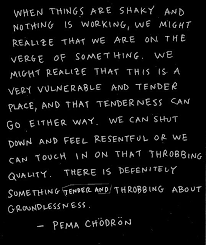 WHEN THINGS ARE SHAKY AND
NOTHING IS WORKING, WE MIGHT
REALIZE THAT WE ARE ON THE
VERGE OF SOMETHING. WE
MIGHT REALIZE THAT THIS IS A
VERY VULNERABLE AND TENDER
PLACE, AND THAT TENDERNESS CAN
GO EITHER WAY. WE CAN SHUT
DOWN AND FEEL RESENTFUL OR WE
CAN TOUCH IN ON THAT THROBBING
QUALITY. THERE IS DEFENITELY
SOMETHING TENDER AND THROBBING ABOUT
GROUNDLESSNESS.
— PEMA CHÖDRÖN